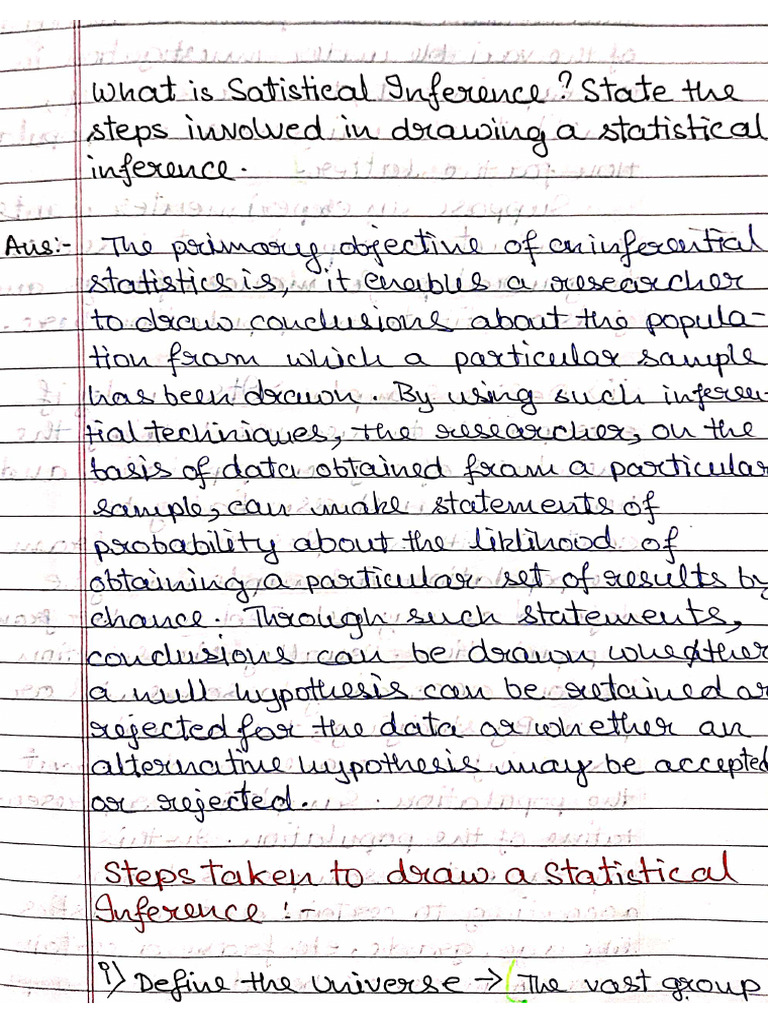 What is Satistical Inference? State the
steps involved in drawing a statistical
inference.
Ans:- The primary objective of an inferential
statistics is, it enables a researcher
to draw conclusions about the popula-
tion from which a particular sample
has been drawn. By using such inferen-
tial techniques, the researcher, on the
basis of data obtained from a particular
sample, can make statements of
probability about the liklihood of
obtaining a particular set of results by
chance. Through such statements,
conclusions can be drawn whether
a null hypothesis can be retained or
rejected for the data or whether an
alternative hypothesis may be accepted
or rejected.
Steps taken to draw a Statistical
Inference :-
i) Define the Universe → (The vast group